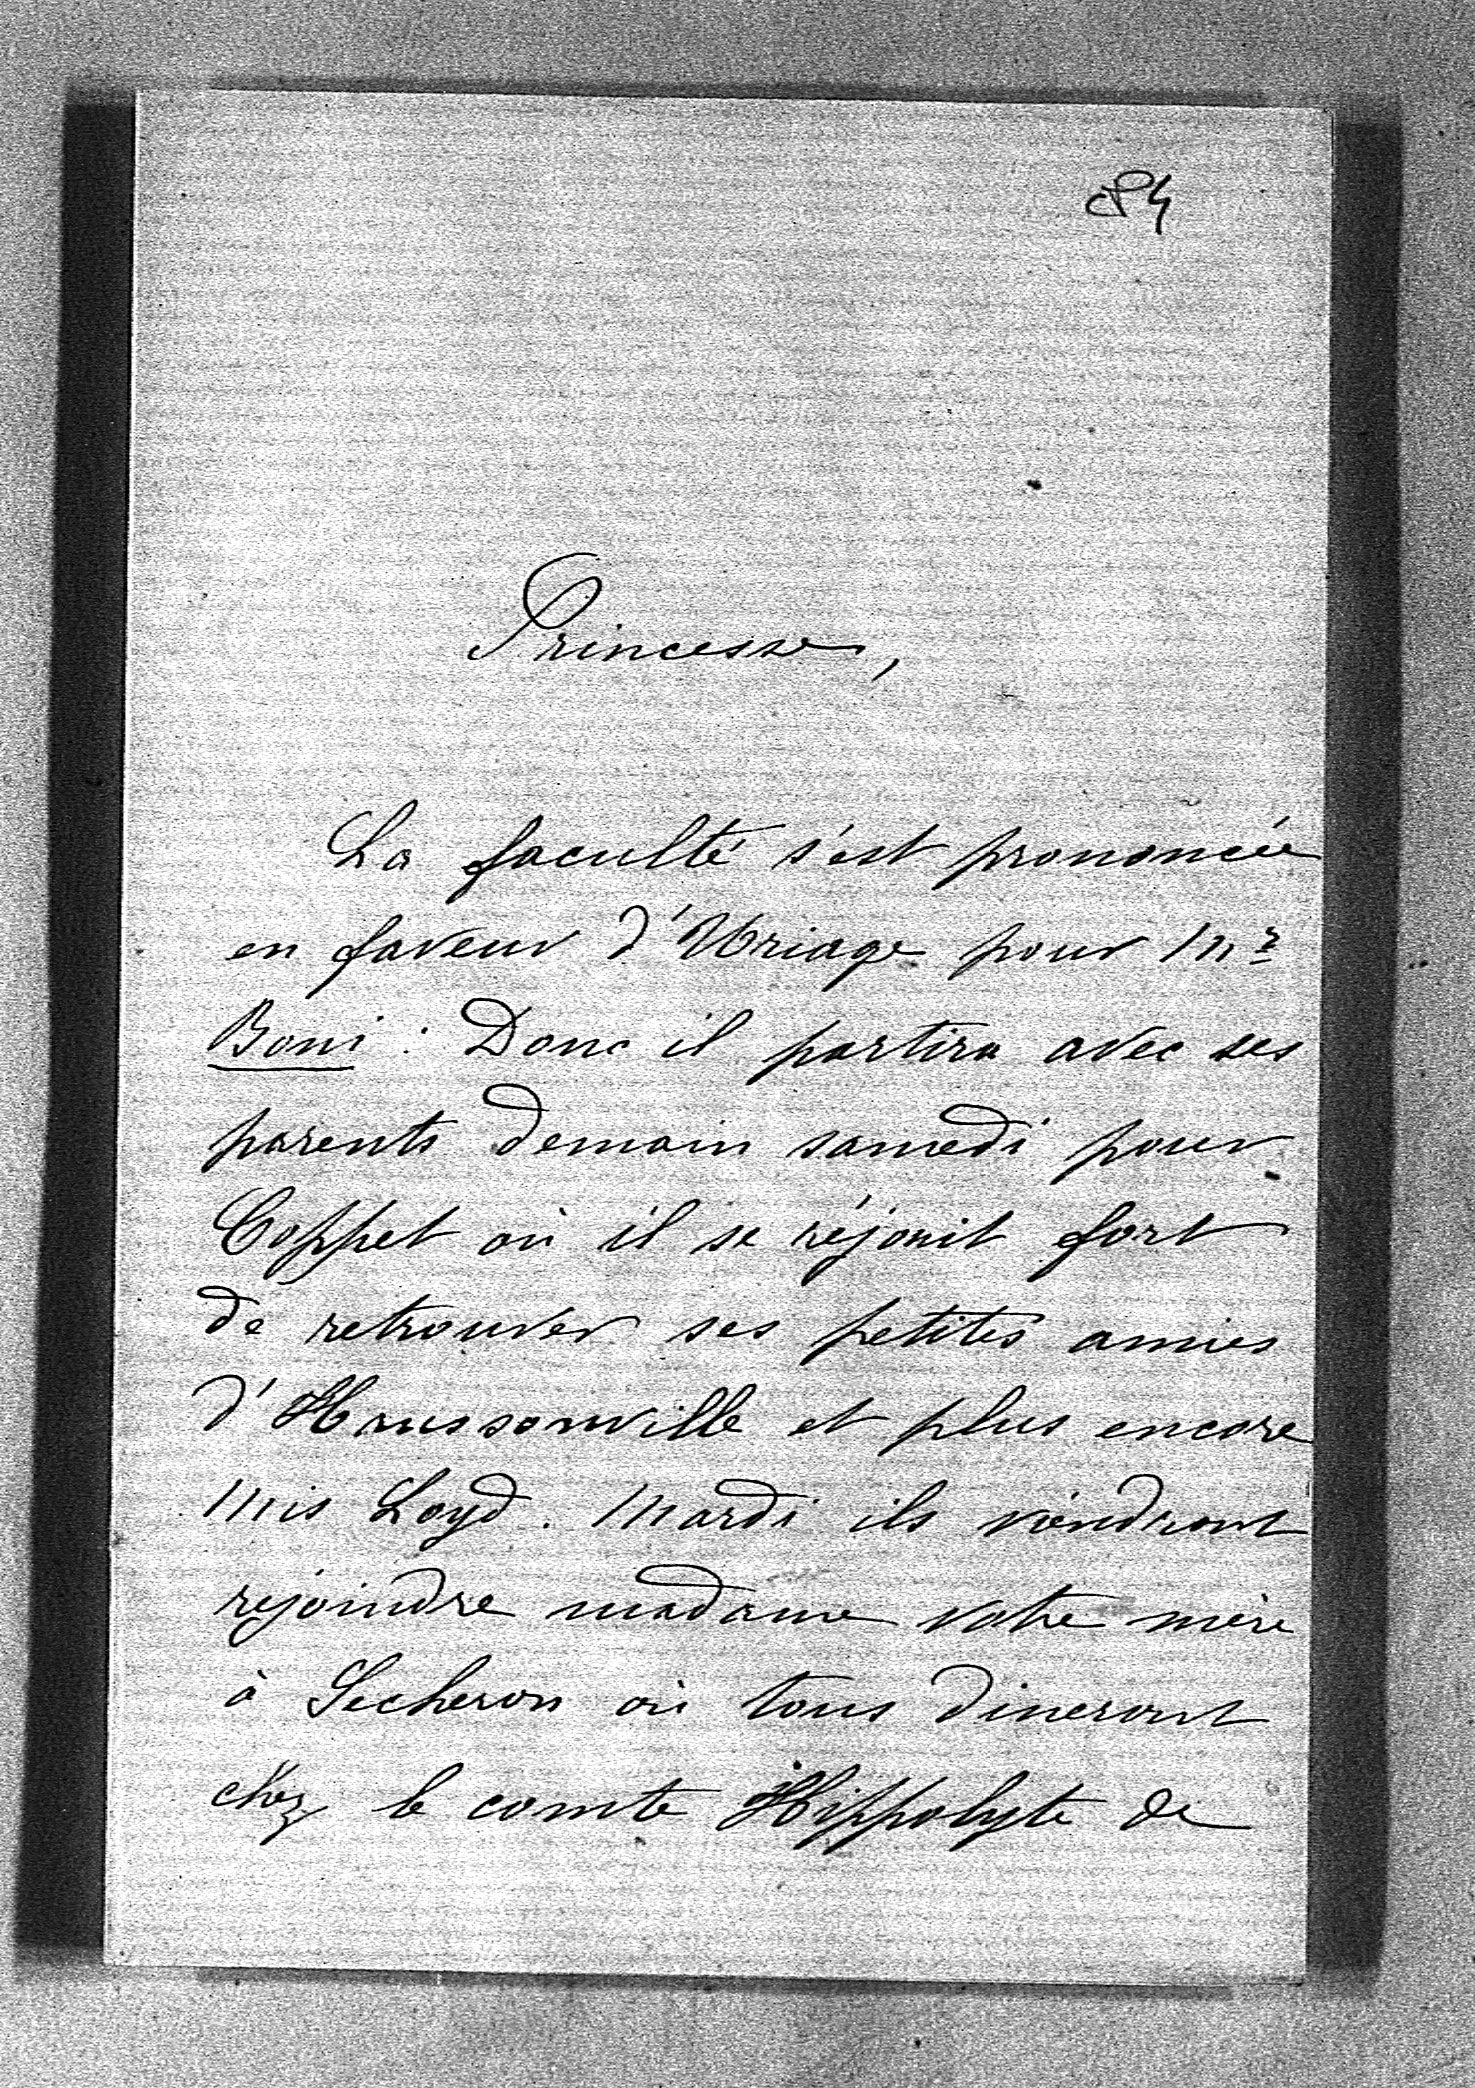 84
Princesse,
La faculté s'est prononcée
en faveur d'Uriage pour Mr
Boni. Donc il partira avec ses
parents demain samedi pour
Coppet où il se réjouit fort
de retrouver ses petites amies
d'Haussonville et plus encore
Mis Loyd. Mardi ils viendront
rejoindre madame votre mère
à Secheron où tous dineront
chez le comte Hippolyte de